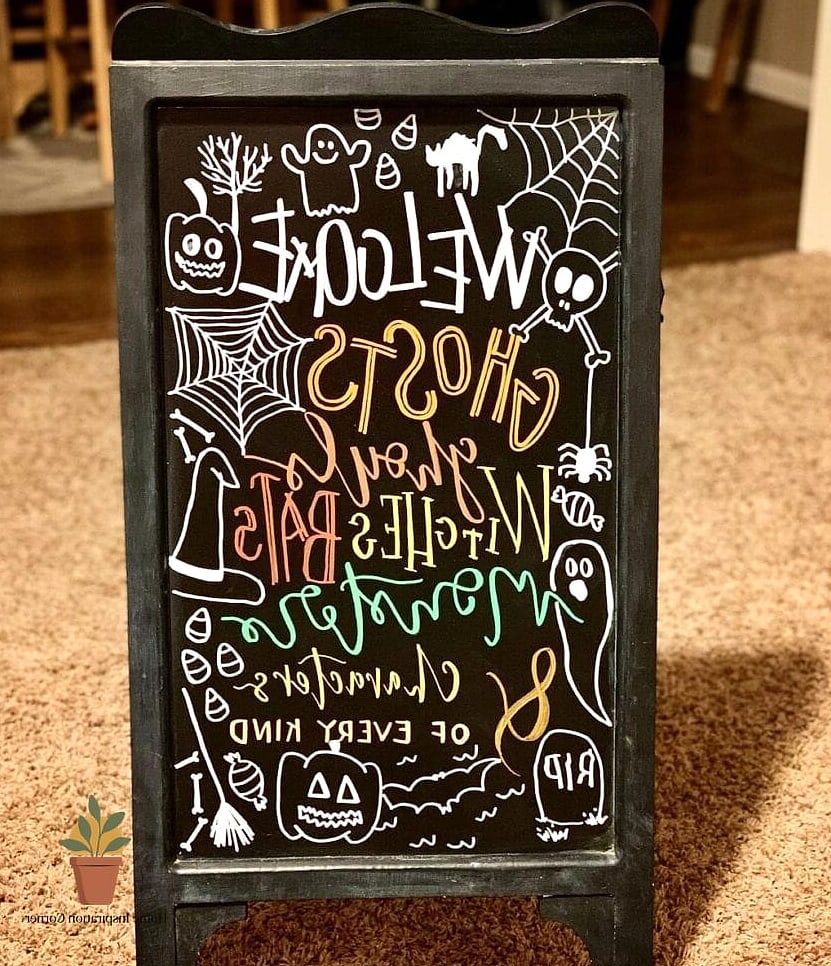 WELCOME
GHOSTS
ghouls
WITCHES BATS
monsters
& Characters
OF EVERY KIND
RIP
Home Inspiration Corner